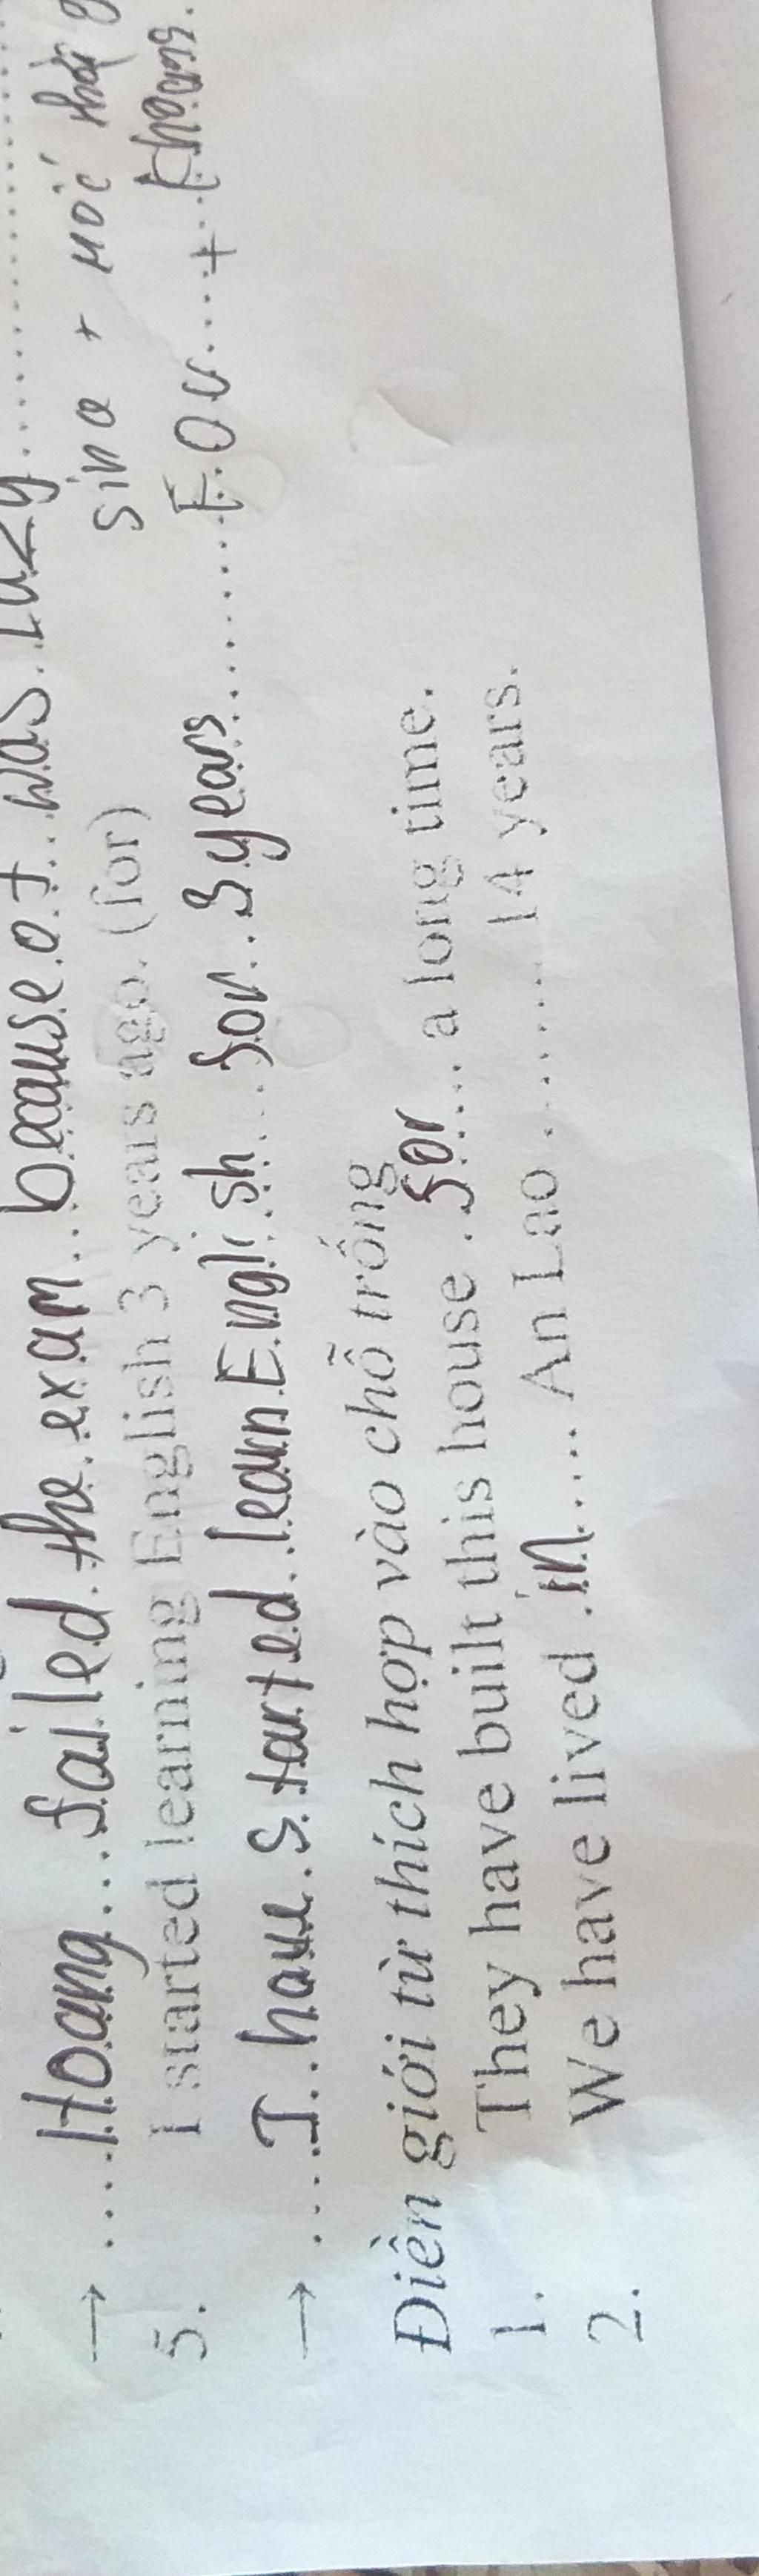 → ....Hoang....failed.the.exam...because.of..was.Lazy..........
sina + mốc thời g
5. I started learning English 3 years ago. (for)
Khoảng.
→ ....I..have.started.learn.English...for..3years..........For....+
Điền giới từ thích hợp vào chỗ trống
1. They have built this house .for.... a long time.
2. We have lived .in..... An Lao ......... 14 years.